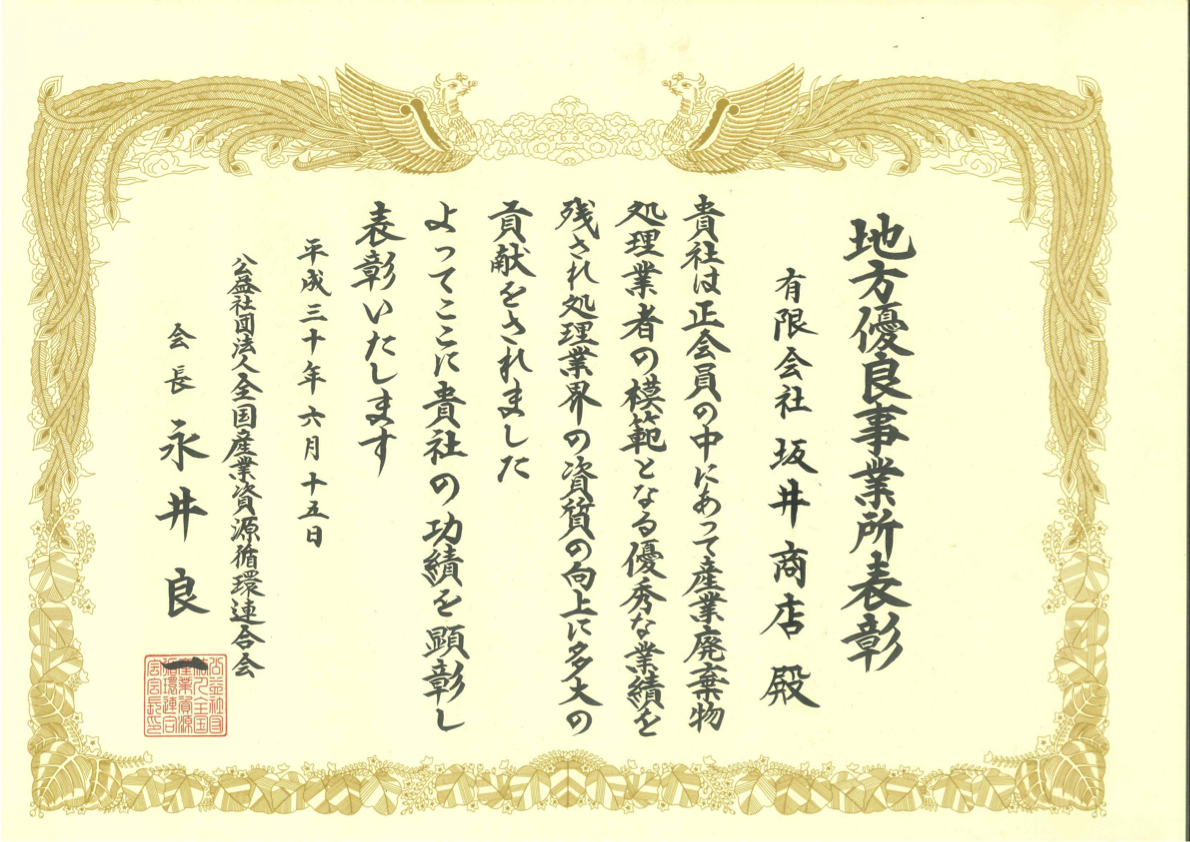 地方優良事業所表彰
有限会社 坂井商店 殿
貴社は正会員の中にあって産業廃棄物
処理業者の模範となる優秀な業績を
残され処理業界の資質の向上に多大の
貢献をされました
よってここに貴社の功績を顕彰し
表彰いたします
平成三十年六月十五日
公益社団法人全国産業資源循環連合会
会長 永井良一
公益社団
法人全国
産業資源
循環連合
会会長印